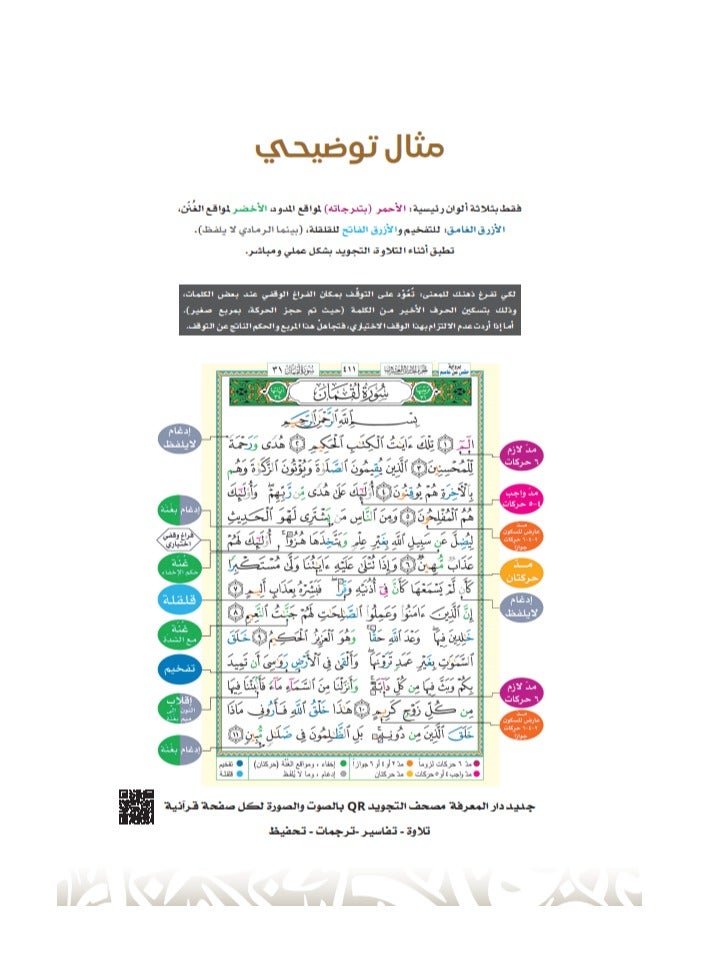 مثال توضيحي
فقط بثلاثة ألوان رئيسية: الأحمر (بتدرجاته) لمواقع المدود، الأخضر لمواقع الغُنّن،
الأزرق الغامق: للتفخيم والأزرق الفاتح للقلقلة، (بينما الرمادي لا يلفظ).
تطبق أثناء التلاوة، التجويد بشكل عملي ومباشر.
لكي تفرغ ذهنك للمعنى: تُعَوِّد على التوقُف بمكان الفراغ الوقفي عند بعض الكلمات،
وذلك بتسكين الحرف الأخير من الكلمة (حيث تم حجز الحركة، بمربع صغير).
أما إذا أردت عدم الالتزام بهذا الوقف الاختياري، فتجاهلْ هذا المربع والحكم الناتج عن التوقف.
سُورَةُ لُقْمَان ٣١
٤١١
برواية
حفص عن عاصم
سُورَةُ لُقْمَان
بِسْمِ اللَّهِ الرَّحْمَٰنِ الرَّحِيمِ
الٓمٓ ١ تِلْكَ ءَايَٰتُ الْكِتَٰبِ الْحَكِيمِ ٢ هُدًى وَرَحْمَةً
لِّلْمُحْسِنِينَ ٣ الَّذِينَ يُقِيمُونَ الصَّلَوٰةَ وَيُؤْتُونَ الزَّكَوٰةَ وَهُم
بِالْءَاخِرَةِ هُمْ يُوقِنُونَ ٤ أُوْلَٰٓئِكَ عَلَىٰ هُدًى مِّن رَّبِّهِمْ وَأُوْلَٰٓئِكَ
هُمُ الْمُفْلِحُونَ ٥ وَمِنَ النَّاسِ مَن يَشْتَرِى لَهْوَ الْحَدِيثِ
لِيُضِلَّ عَن سَبِيلِ اللَّهِ بِغَيْرِ عِلْمٍ وَيَتَّخِذَهَا هُزُوًا أُوْلَٰٓئِكَ لَهُمْ
عَذَابٌ مُّهِينٌ ٦ وَإِذَا تُتْلَىٰ عَلَيْهِ ءَايَٰتُنَا وَلَّىٰ مُسْتَكْبِرًا
كَأَن لَّمْ يَسْمَعْهَا كَأَنَّ فِىٓ أُذُنَيْهِ وَقْرًا فَبَشِّرْهُ بِعَذَابٍ أَلِيمٍ ٧
إِنَّ الَّذِينَ ءَامَنُوا وَعَمِلُوا الصَّٰلِحَٰتِ لَهُمْ جَنَّٰتُ النَّعِيمِ ٨
خَٰلِدِينَ فِيهَا وَعْدَ اللَّهِ حَقًّا وَهُوَ الْعَزِيزُ الْحَكِيمُ ٩ خَلَقَ
السَّمَٰوَٰتِ بِغَيْرِ عَمَدٍ تَرَوْنَهَا وَأَلْقَىٰ فِى الْأَرْضِ رَوَٰسِىَ أَن تَمِيدَ
بِكُمْ وَبَثَّ فِيهَا مِن كُلِّ دَآبَّةٍ وَأَنزَلْنَا مِنَ السَّمَآءِ مَآءً فَأَنۢبَتْنَا فِيهَا
مِن كُلِّ زَوْجٍ كَرِيمٍ ١٠ هَٰذَا خَلْقُ اللَّهِ فَأَرُونِى مَاذَا
خَلَقَ الَّذِينَ مِن دُونِهِ بَلِ الظَّٰلِمُونَ فِى ضَلَٰلٍ مُّبِينٍ ١١
مدّ لازم
٦ حركات
مد واجب
٤-٥ حركات
مــد
عارض للسكون
٢-٤-٦ حركات
جوازاً
مــد
حركتان
إدغام
لا يلفظ
مدّ لازم
٦ حركات
مــد
عارض للسكون
٢-٤-٦ حركات
جوازاً
إدغام
لا يلفظ
إدغام بغنة
فراغ وقفي
اختياري
غُنة
حكم الإخفاء
قلقلة
غُنة
مع الشدة
تفخيم
إقلاب
النون إلى
ميم بغنة
إدغام بغنة
مدّ ٦ حركات لزوماً مدّ ٢ أو ٤ أو ٦ جوازاً إخفاء، ومواقع الغُنَّة (حركتان) تفخيم
مدّ واجب ٤ أو ٥ حركات مدّ حركتان إدغام، وما لا يُلفَظ قلقلة
جديد دار المعرفة مصحف التجويد QR بالصوت والصورة لكل صفحة قرآنية
تلاوة - تفاسير -ترجمات - تحفيظ